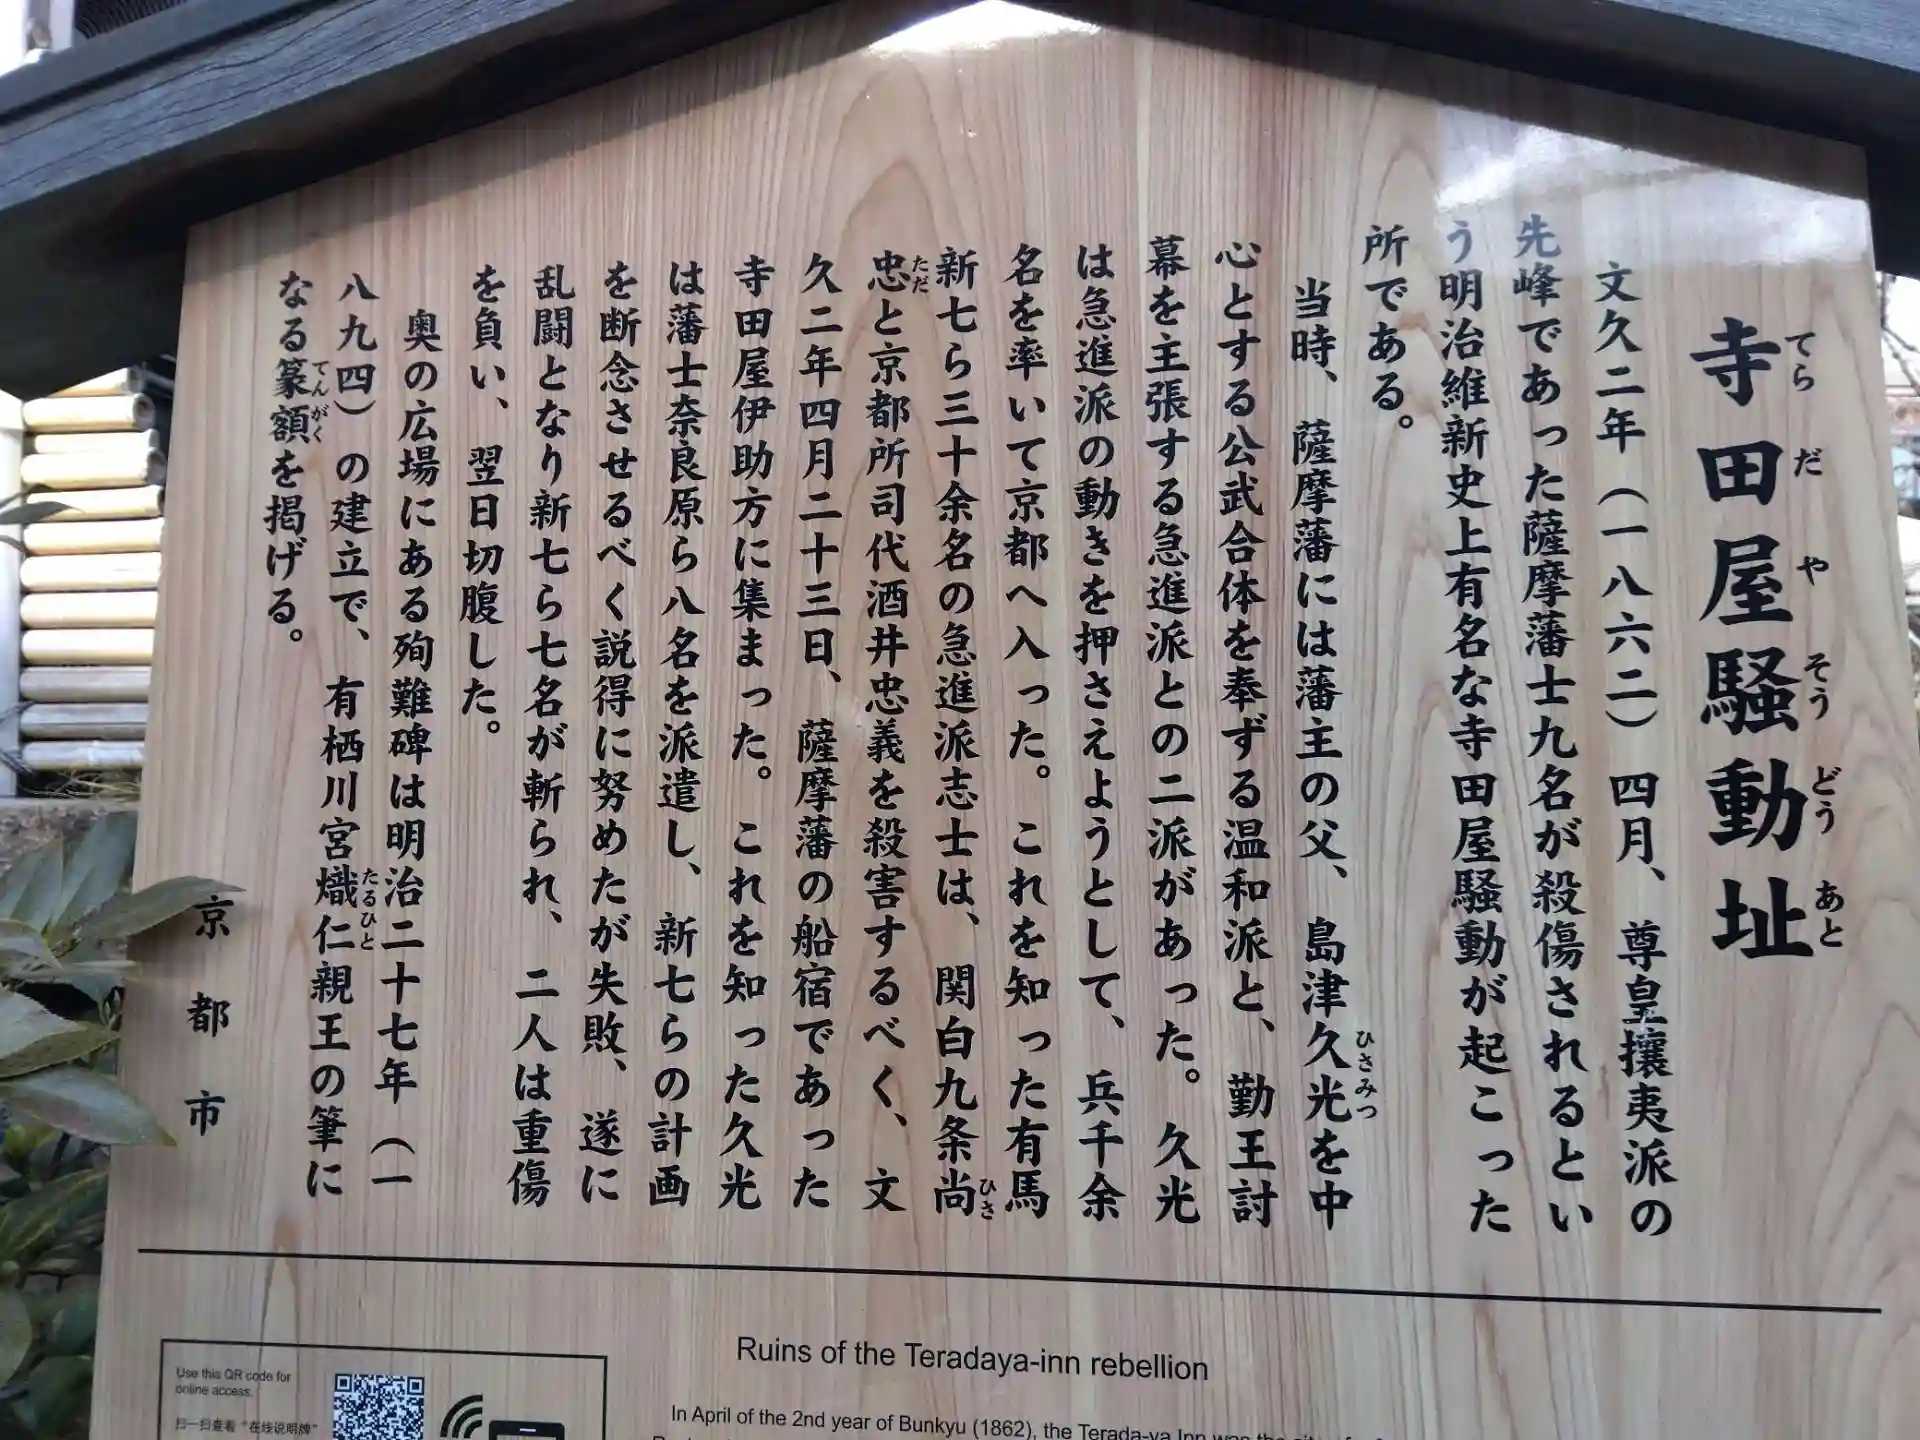 寺田屋騒動址
てらだやそうどうあと
文久二年（一八六二）四月、尊皇攘夷派の
先峰であった薩摩藩士九名が殺傷されるとい
う明治維新史上有名な寺田屋騒動が起こった
所である。
当時、薩摩藩には藩主の父、島津久光を中
ひさみつ
心とする公武合体を奉ずる温和派と、勤王討
幕を主張する急進派との二派があった。久光
は急進派の動きを押さえようとして、兵千余
名を率いて京都へ入った。これを知った有馬
新七ら三十余名の急進派志士は、関白九条尚
ひさ
忠と京都所司代酒井忠義を殺害するべく、文
ただ
久二年四月二十三日、薩摩藩の船宿であった
寺田屋伊助方に集まった。これを知った久光
は藩士奈良原ら八名を派遣し、新七らの計画
を断念させるべく説得に努めたが失敗、遂に
乱闘となり新七ら七名が斬られ、二人は重傷
を負い、翌日切腹した。
奥の広場にある殉難碑は明治二十七年（一
八九四）の建立で、有栖川宮熾仁親王の筆に
たるひと
なる篆額を掲げる。
てんがく
京都市
Ruins of the Teradaya-inn rebellion
In April of the 2nd year of Bunkyu (1862), the Terada-ya Inn was the
Use this QR code for
online access.
扫一扫查看“在线说明牌”